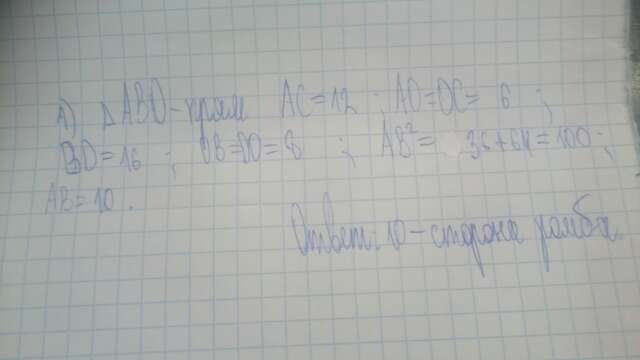 1) △ABO-прям AC=12; AO=OC= 6 ;
BD=16 ; OB=DO=8 ; AB²= 36+64=100;
AB=10.
Ответ: 10-сторона ромба.